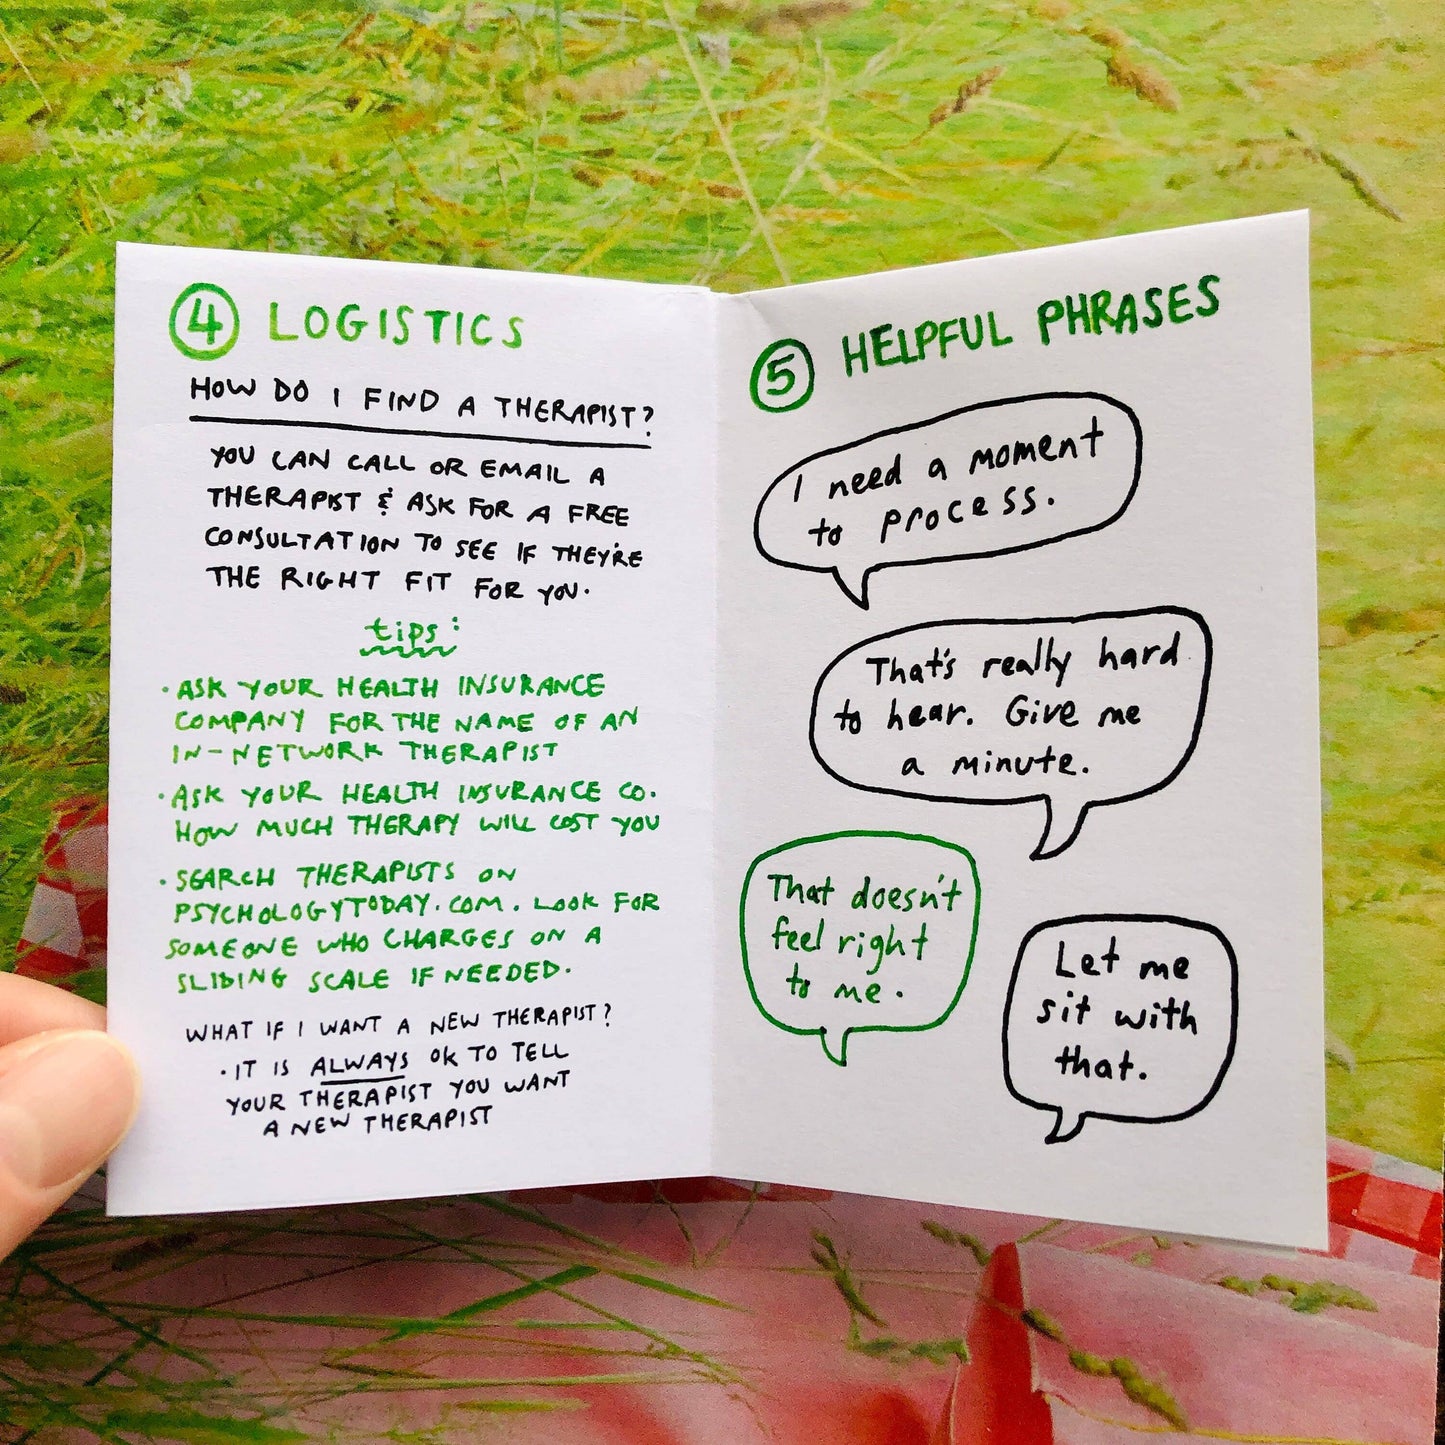 4 LOGISTICS
HOW DO I FIND A THERAPIST?
YOU CAN CALL OR EMAIL A
THERAPIST & ASK FOR A FREE
CONSULTATION TO SEE IF THEY'RE
THE RIGHT FIT FOR YOU.
tips:
• ASK YOUR HEALTH INSURANCE
COMPANY FOR THE NAME OF AN
IN-NETWORK THERAPIST
• ASK YOUR HEALTH INSURANCE CO.
HOW MUCH THERAPY WILL COST YOU
• SEARCH THERAPISTS ON
PSYCHOLOGYTODAY.COM. LOOK FOR
SOMEONE WHO CHARGES ON A
SLIDING SCALE IF NEEDED.
WHAT IF I WANT A NEW THERAPIST?
• IT IS ALWAYS OK TO TELL
YOUR THERAPIST YOU WANT
A NEW THERAPIST
5 HELPFUL PHRASES
I need a moment
to process.
That's really hard
to hear. Give me
a minute.
That doesn't
feel right
to me.
Let me
sit with
that.